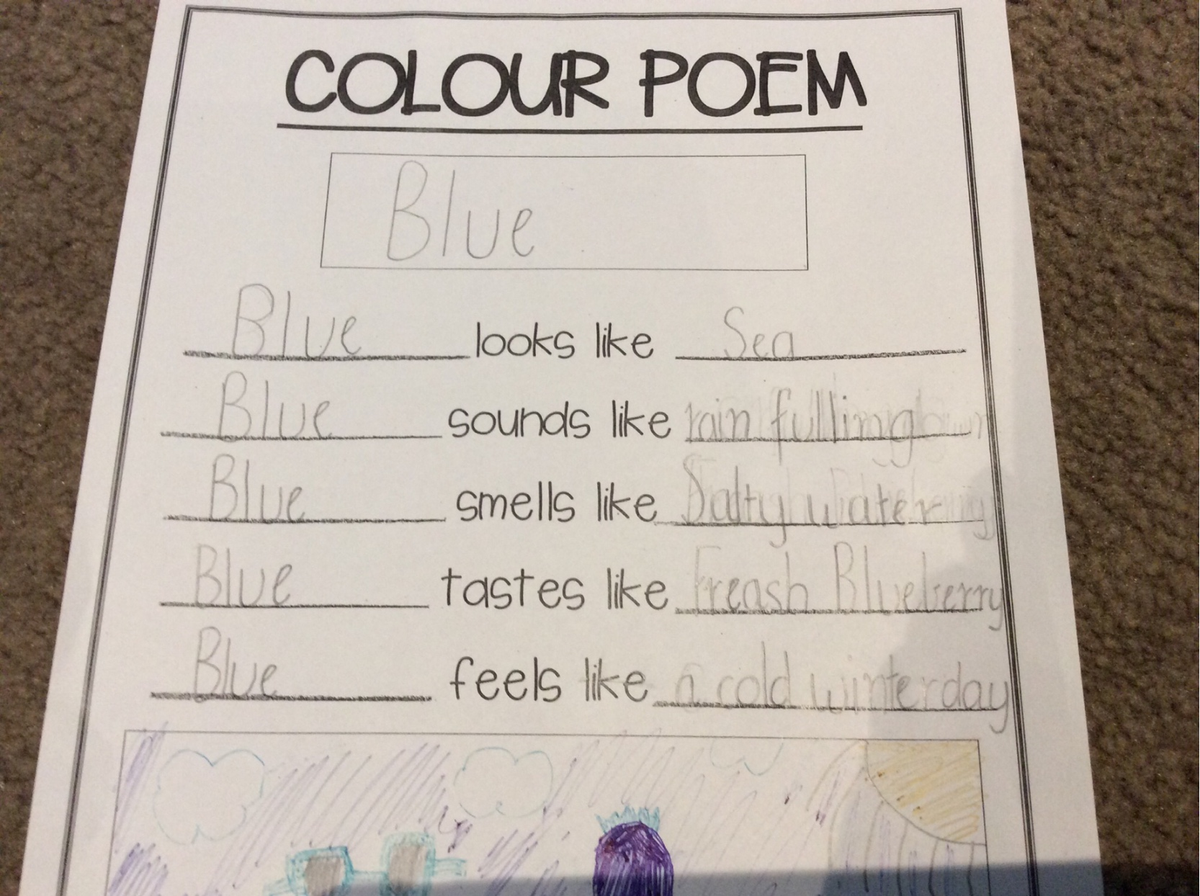 COLOUR POEM
Blue
Blue looks like Sea
Blue sounds like rain fulling
Blue smells like Salty water
Blue tastes like Freash Blueberry
Blue feels like a cold winter day